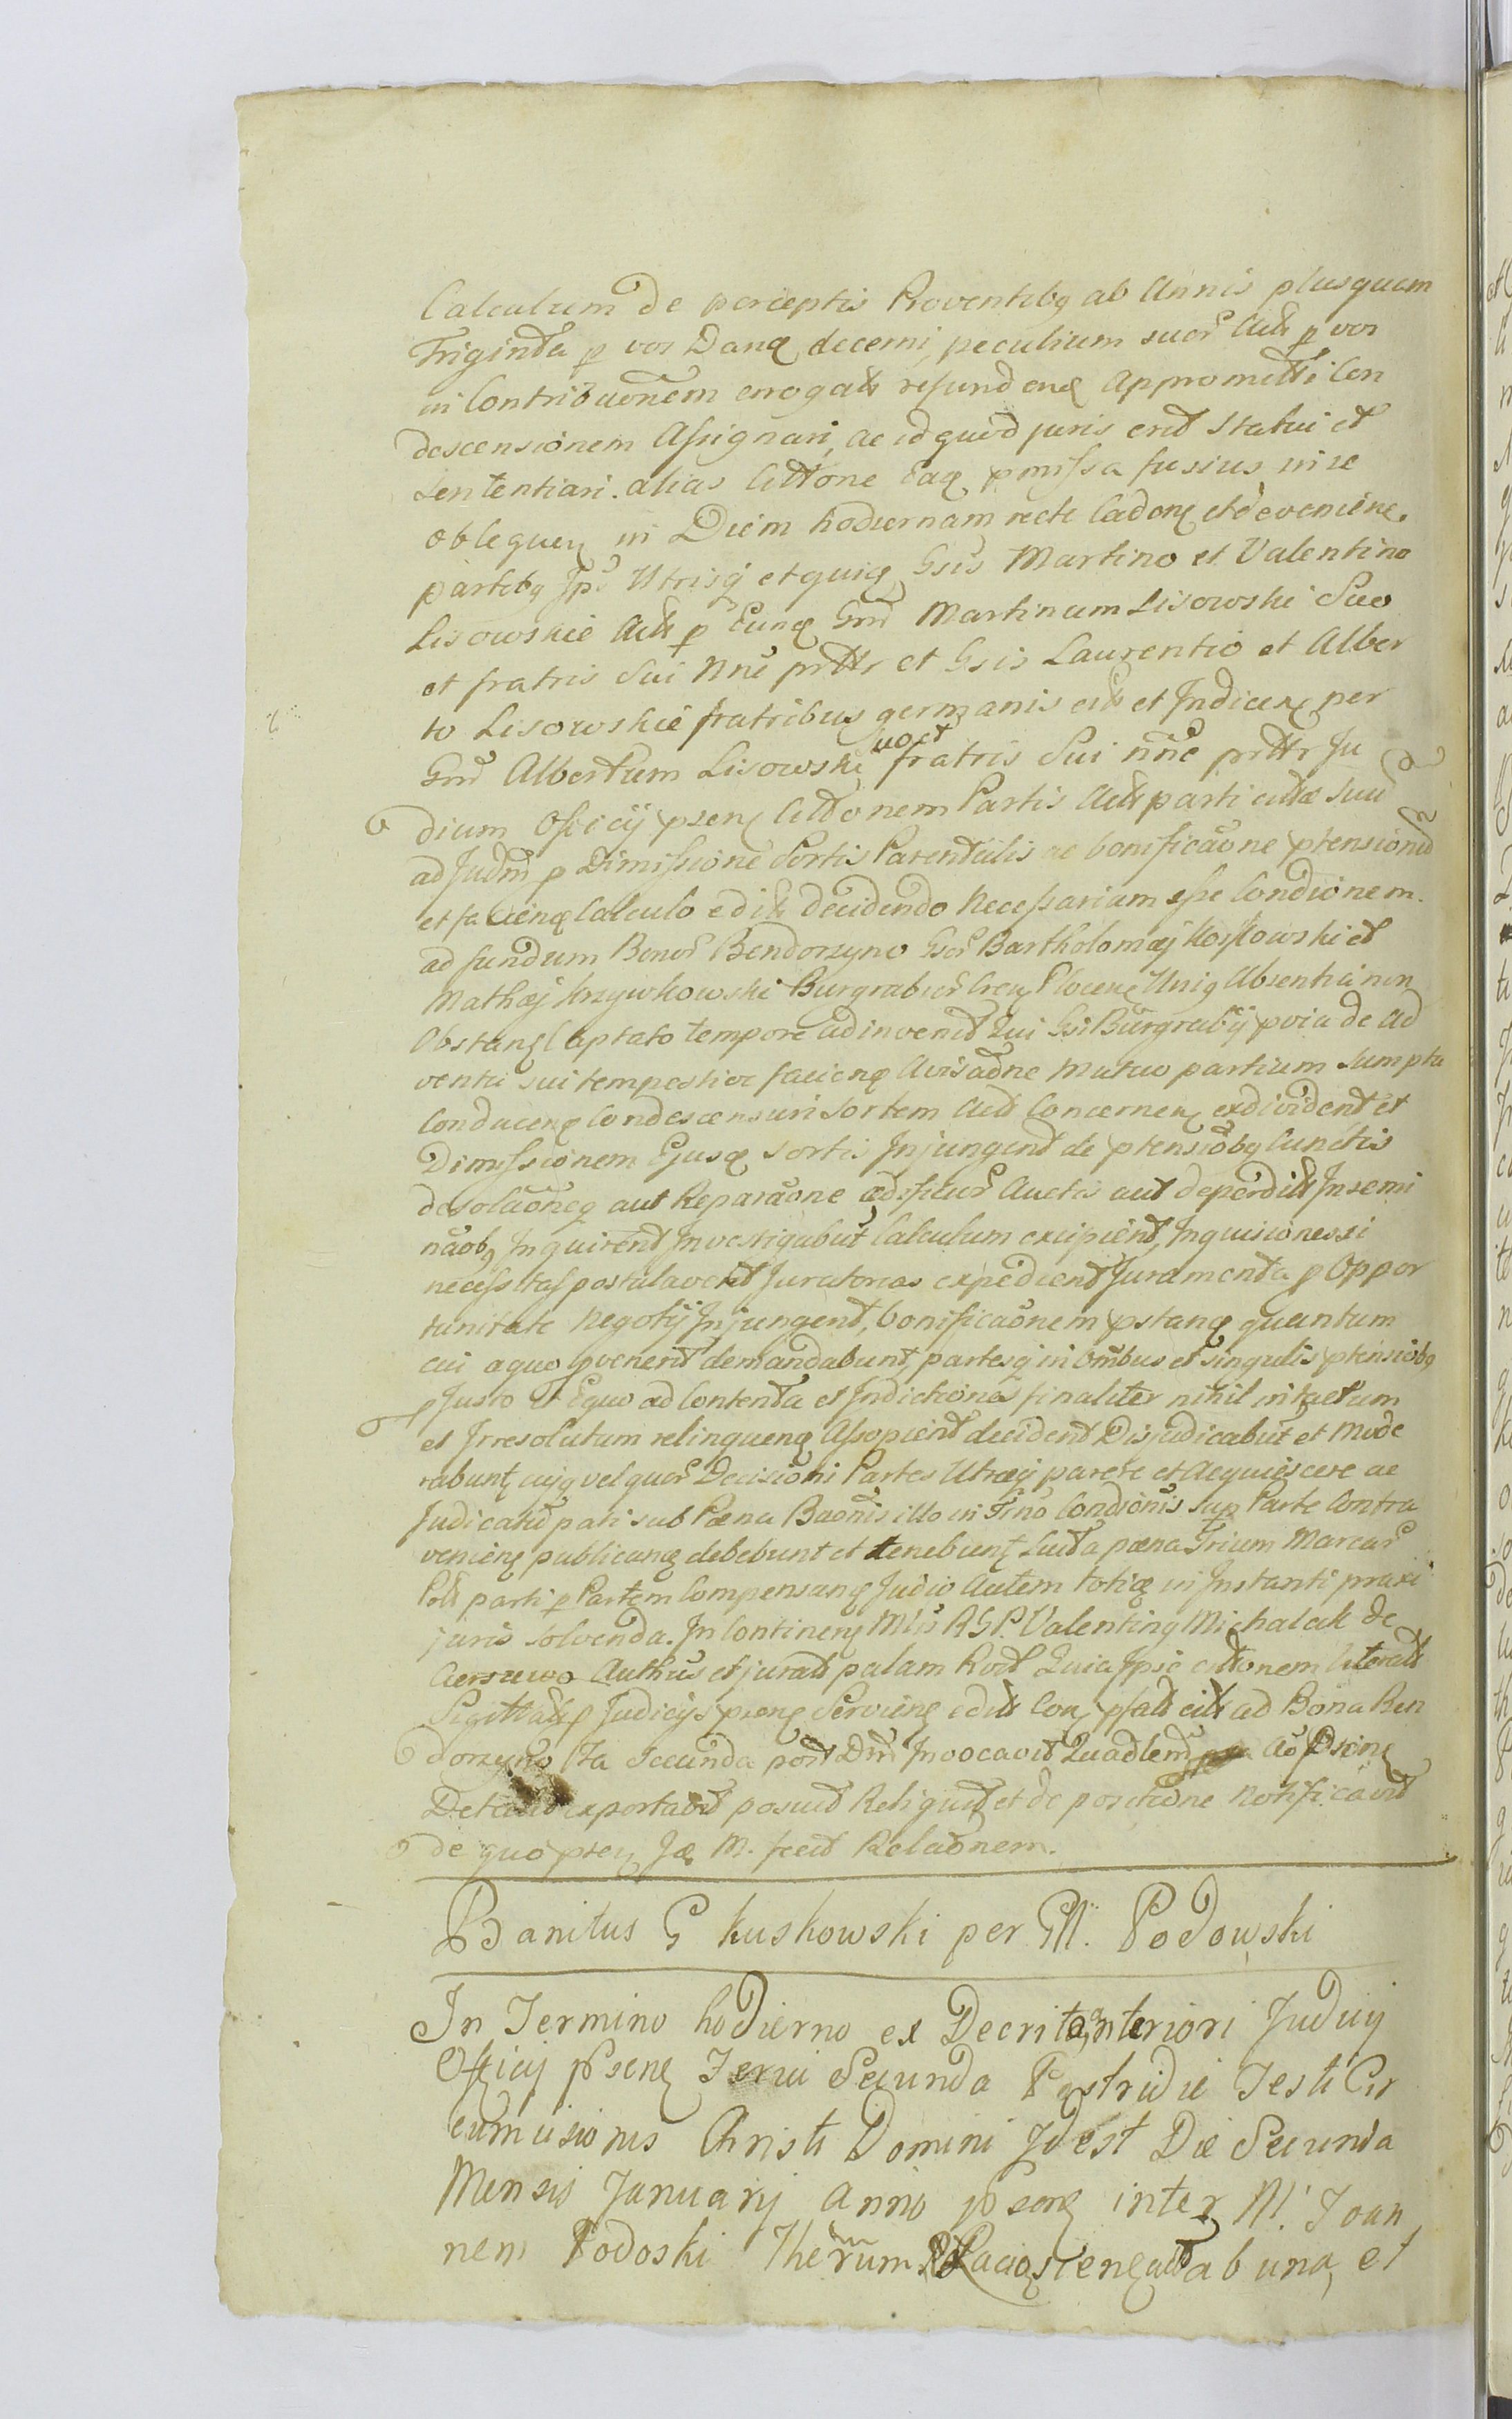 Calculum de perceptis Proventibq ab Annis plusquam
Triginta p vos Danq decerni, peculium suor Actt p vos
in Contribuõnem errogatt refundenq appromitti Con
descensionem Assignari, ac id quid juris erit Statui et
Sententiari. alias Citt̃one Eaq pmissa fusius in se
obloquen in Diem hodiernam recte Caden et evenien.
partibq Ips Utrisq et quiq Gsis Martino et Valentino
Lisowskie Actt p Eunq Gnd Martinum Lisowski Suo
et fratris Sui Nñe prttr et Gsis Laurentio et Alber
to Lisowskie fratribus germanis citt et Indicen per
Gnd Albertum Lisowski Suo et fratris Sui nñe prttr Ju
dium Officij psenq Citt̃onem Partis Actt parti cittæ Suu
ad Judm p Dimissione Sortis Parentalis ac bonificaõne ptensionũ
et facienq Calculo editt decidendo Necessariam esse Condionem.
ad fundum Bonor Bendorzyno Gsor Bartholomæj Kossowski et
Mathæj Krzywkowski Burgrabior Cren Plocen Uniq Absentia non
Obstanq Captato tempore adinvenit Qui Gsi Burgrabij pvia de Ad
ventu sui tempestive facienq Avisaõne mutuo partium Sumptu
Conducenq Condescensuri Sortem Actt Concernen exdivident et
Dimissionem Ejusq Sortis Injungent de ptensiõbq Cunctis
desolaõneq aut Reparaõne ædificior Auctis aut deperditt Insemi
naõbq Inquirent Investigabut Calculum excipient, Inquisiones si
necessitas postulaverit Juratorias expedient Juramenta p Oppor
tunitate Negotij Injungent, bonificaõnem pstanq quantum
cui aquo pvenerit demandabunt, partesq in Omibus et singulis ptensiõbq
p Justo et Equo ad Contenta et Indictiones finaliter nihil intactum
et Irresolutum relinquenq Assopient decident Disjudicabut et Mode
rabunt, cujq vel quor Decisioni Partes Utræq parere et Acquiescere ac
Judicatũ pati sub Pæna Baõnis illo in Tño Condionis sup Parte Contra
venienq publicanq debebunt et tenebunt Luita pæna Trium Marcar
Poll parti p Partem Compensanq Judio Autem totiq in Instanti praxi
juris Solvenda. In Continen Mlis RGP. Valentinq Michalak de
Authus et jurats palam Rvit Quia Ipse cittionem literatt
Sigittatt Judicijs psenq Servienq editt Con psatt citt ad Bona Ben
dorzyno Ita Secunda post Dm Invocavit Quadlem
exportavit posuit Reliquit et de positione Notificavit
de quo psen Jq M. fecit Relaõnem.
Banitus G Kuskowski per M. Podowski
In Termino hodierno ex Decrito anteriori Judicij
Officij psenq Feria Secunda Postridie Festi Cir
cumcisionis Christi Domini Idest Die Secunda
Mensis Januarij Anno psenq inter M. Joan
nem Podoski Therum Raciąsiensem ab una, et